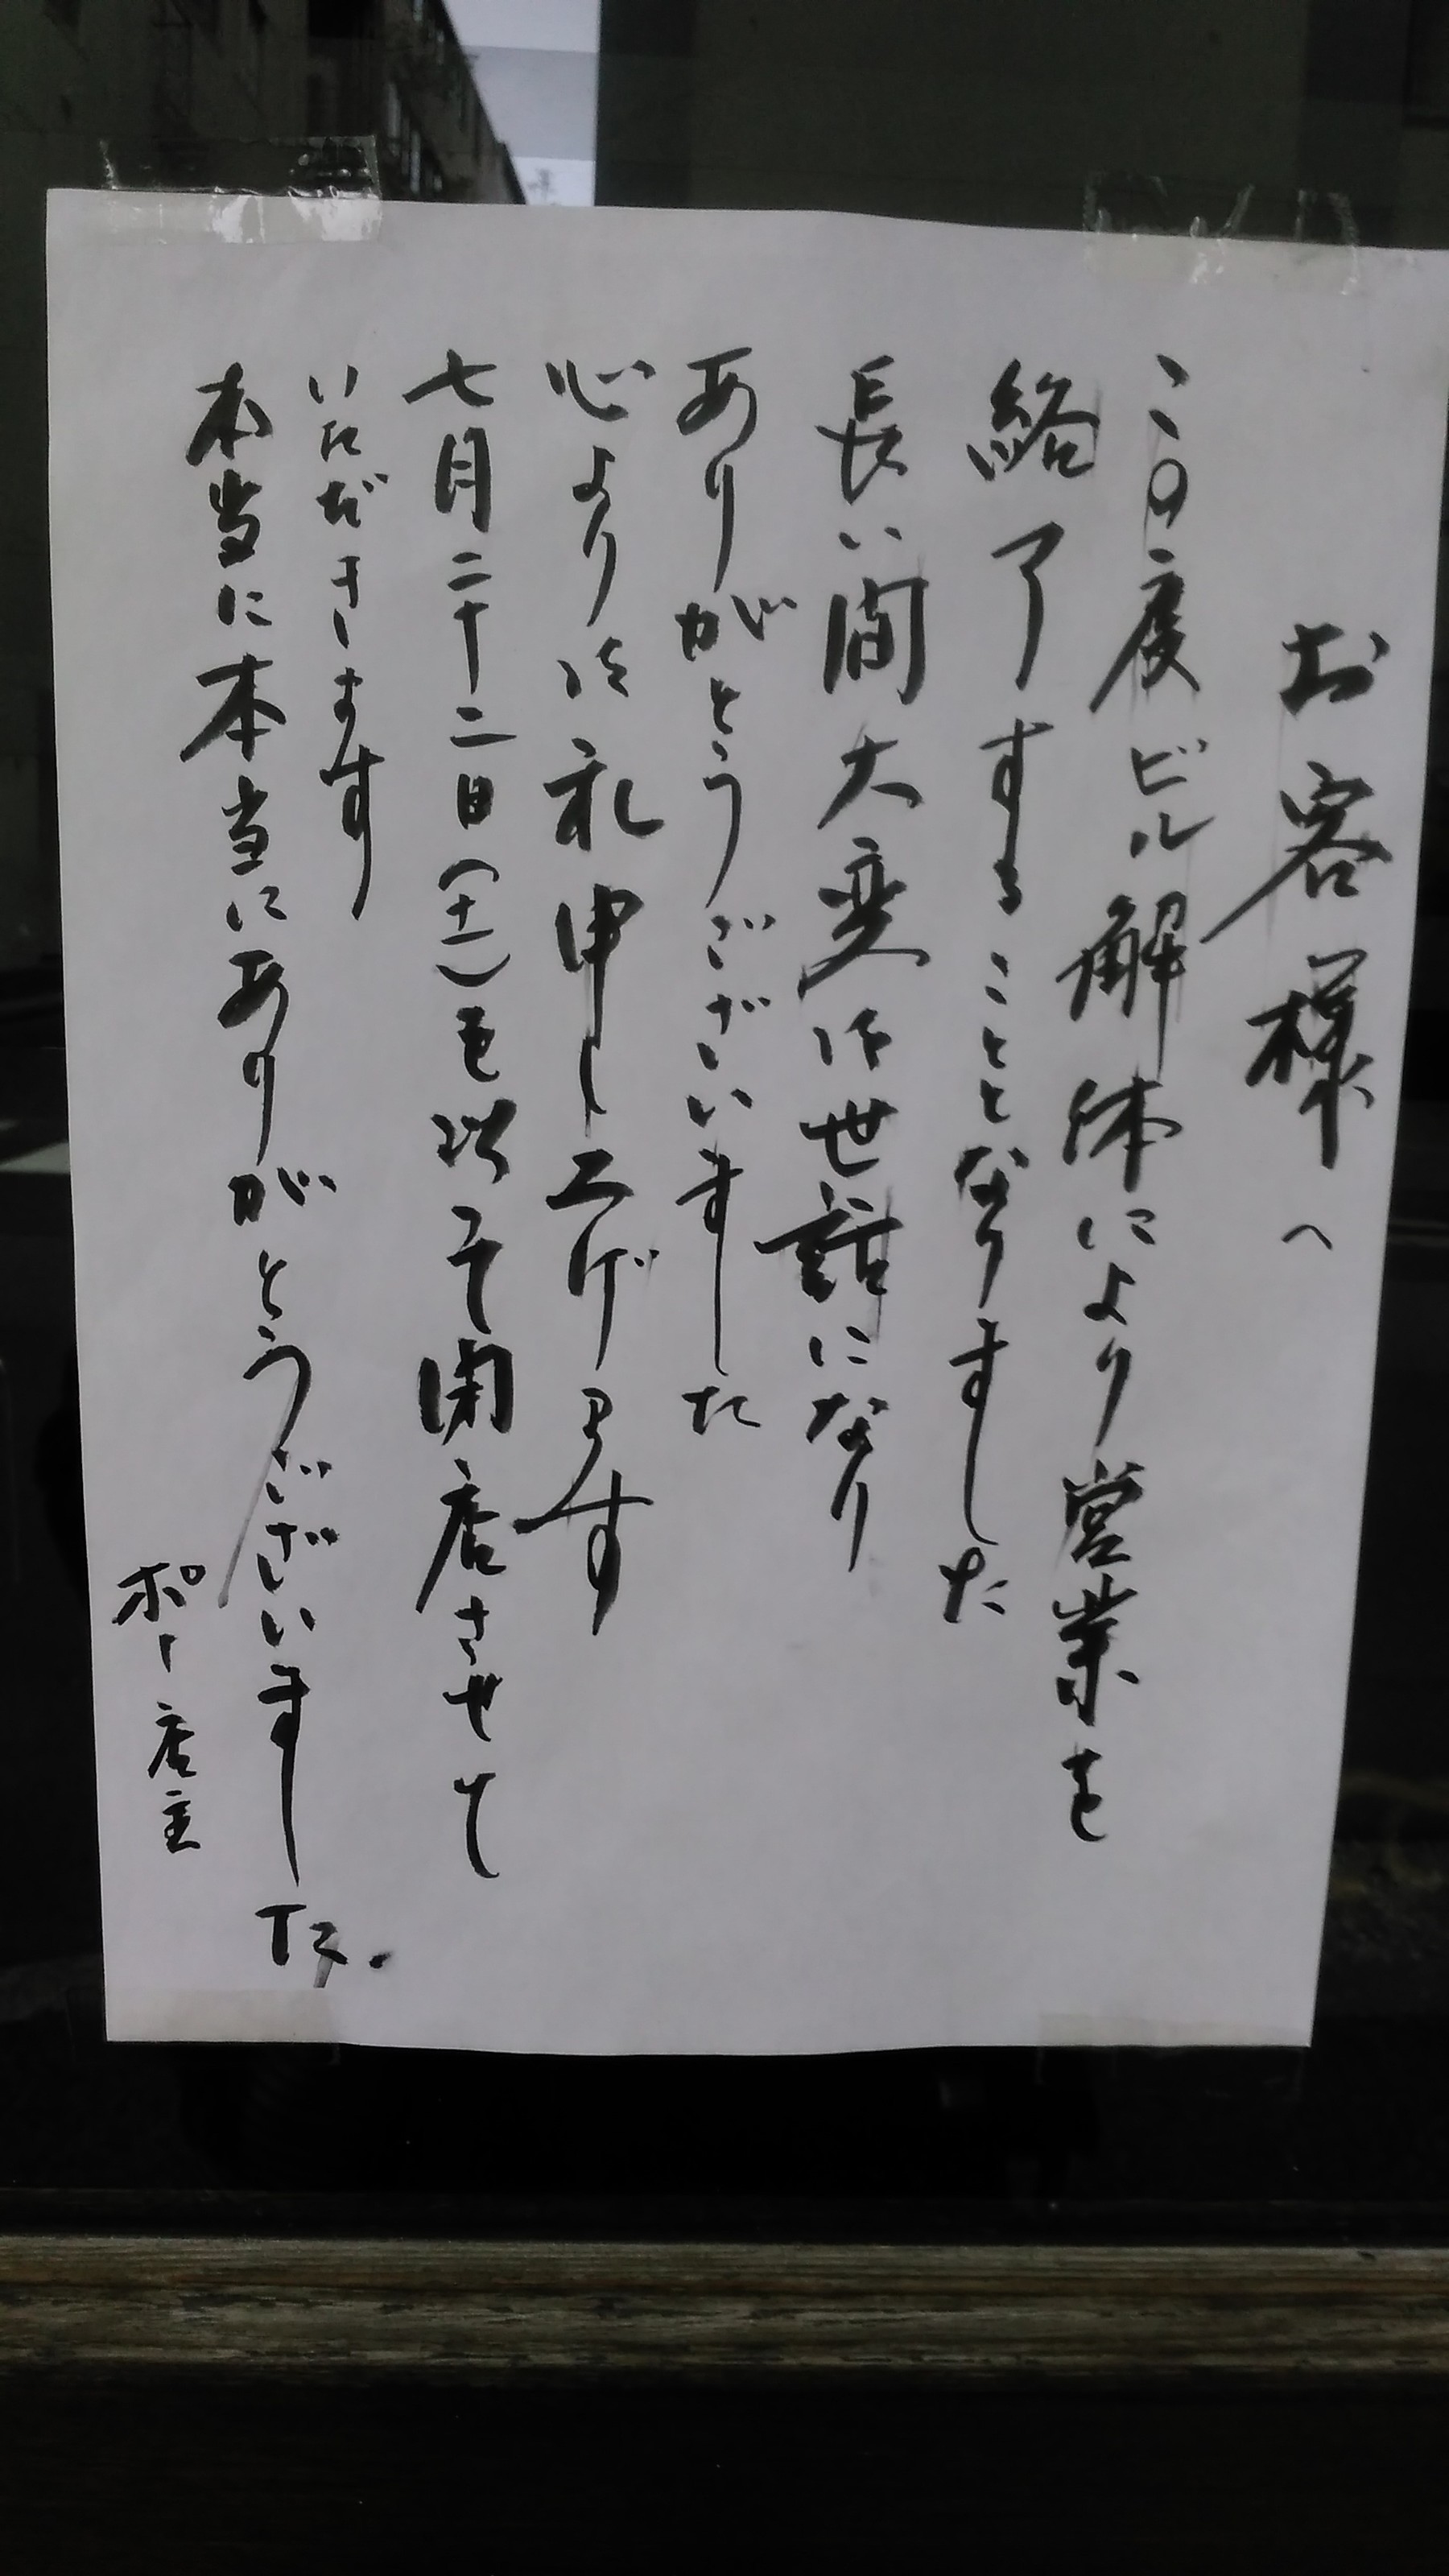 お客様へ
この度ビル解体により営業を
絡了することとなりました
長い間大変お世話になり
ありがとうございました
心よりお礼申し上げます
七月二十二日(土)を以て閉店させて
いただきます
本当に本当にありがとうございました.
ポー店主